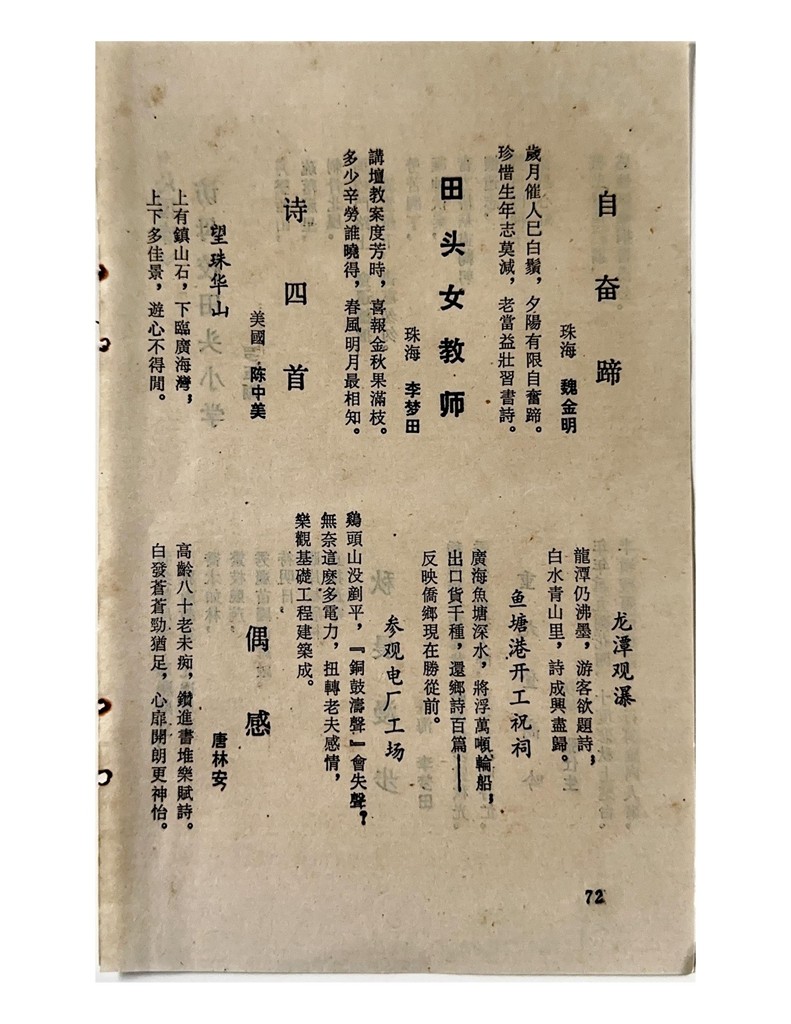 自奋蹄
珠海 魏金明
歲月催人已白鬚，夕陽有限自奮蹄。
珍惜生年志莫減，老當益壯習書詩。
田头女教师
珠海 李梦田
講壇教案度芳時，喜報金秋果滿枝。
多少辛勞誰曉得，春風明月最相知。
诗四首
美國 陈中美
望珠华山
上有鎮山石，下臨廣海灣，
上下多佳景，遊心不得閒。
龙潭观瀑
龍潭仍沸墨，游客欲題詩，
白水青山里，詩成興盡歸。
鱼塘港开工祝祠
廣海魚塘深水，將浮萬噸輪船，
出口貨千種，還鄉詩百篇——
反映僑鄉現在勝從前。
参观电厂工场
鷄頭山没剷平，『銅鼓濤聲』會失聲？
無奈這麽多電力，扭轉老夫感情，
樂觀基礎工程建築成。
偶感
唐林安
高齡八十老未痴，鑽進書堆樂賦詩。
白發蒼蒼勁猶足，心扉開朗更神怡。
72